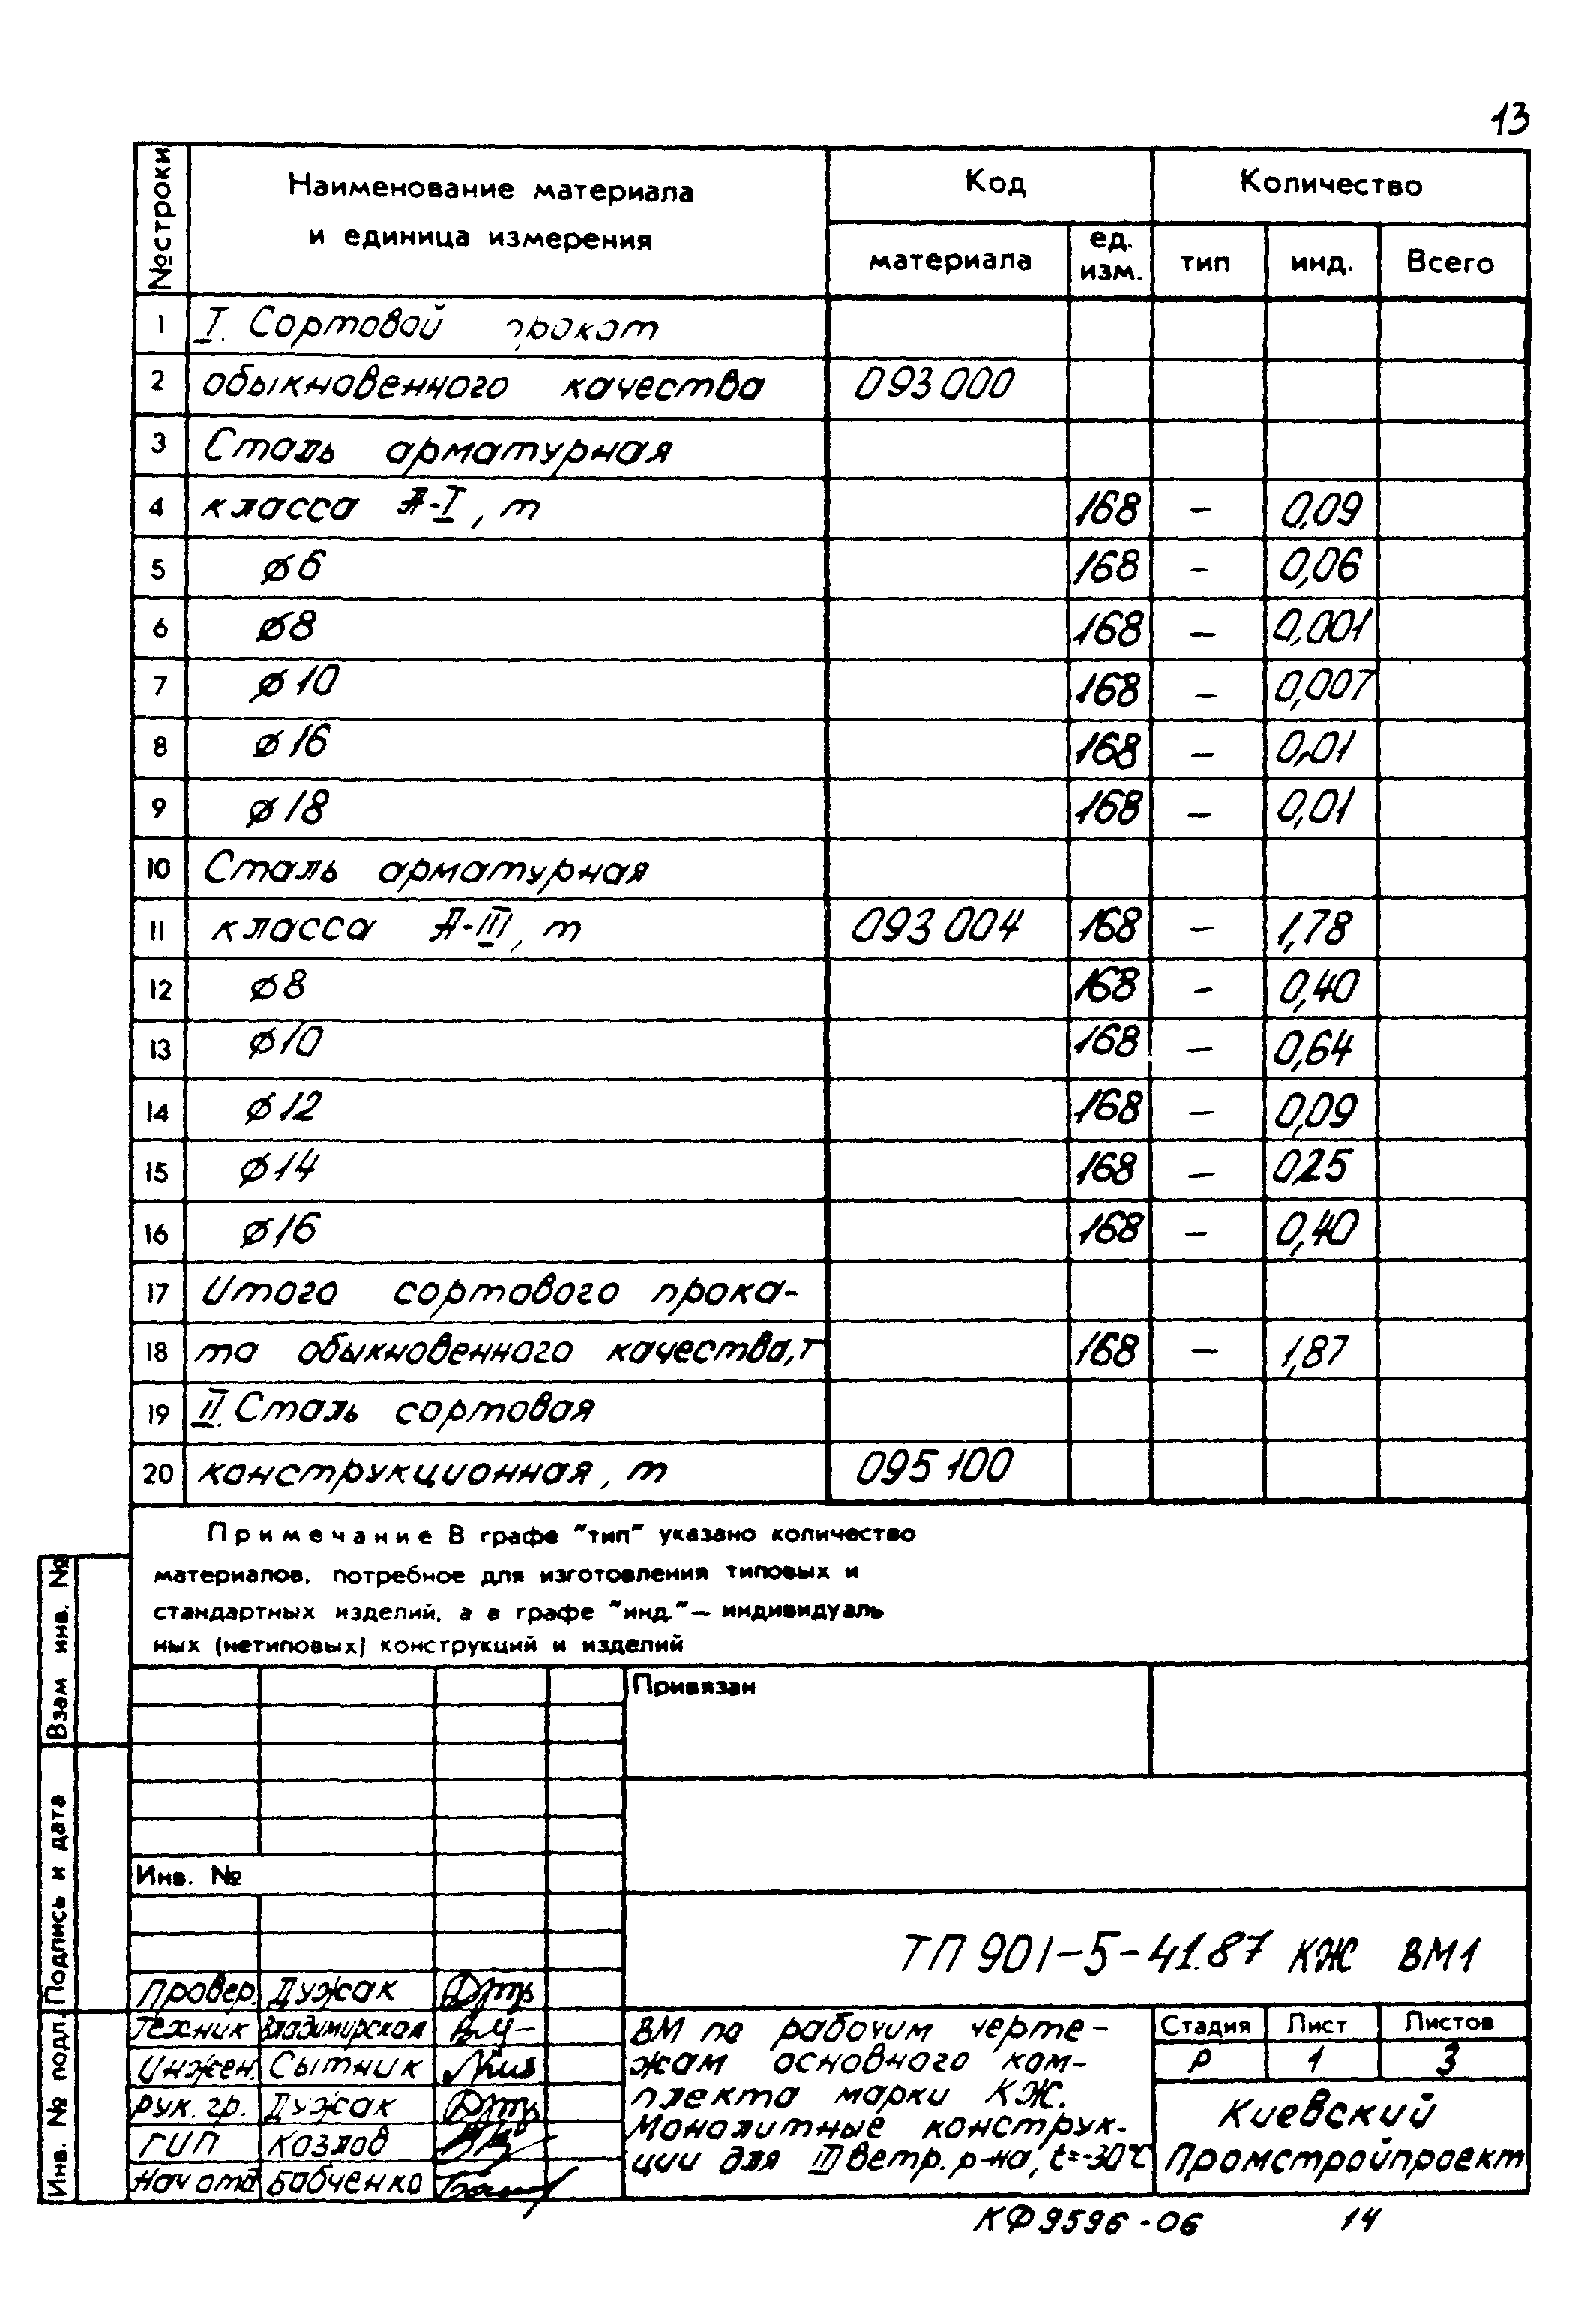 13
№ строки
Наименование материала
и единица измерения
Код
Количество
материала
ед.
изм.
тип
инд.
Всего
1 I. Сортовой прокат
2 обыкновенного качества 093000
3 Сталь арматурная
4 класса А-I, т 168 – 0,09
5 ⌀6 168 – 0,06
6 ⌀8 168 – 0,001
7 ⌀10 168 – 0,007
8 ⌀16 168 – 0,01
9 ⌀18 168 – 0,01
10 Сталь арматурная
11 класса А-III, т 093004 168 – 1,78
12 ⌀8 168 – 0,40
13 ⌀10 168 – 0,64
14 ⌀12 168 – 0,09
15 ⌀14 168 – 0,25
16 ⌀16 168 – 0,40
17 Итого сортового прока-
18 та обыкновенного качества, т 168 – 1,87
19 II. Сталь сортовая
20 конструкционная, т 095100
Примечание В графе "тип" указано количество
материалов, потребное для изготовления типовых и
стандартных изделий, а в графе "инд." – индивидуаль
ных (нетиповых) конструкций и изделий
Привязан
Инв. №
ТП 901-5-41.87 КЖ ВМ1
Провер. Дужак
Техник Владимирская
Инжен. Сытник
Рук. гр. Дужак
ГИП Козлов
Нач отд Бабченко
ВМ по рабочим черте-
жам основного ком-
плекта марки КЖ.
Монолитные конструк-
ции для III ветр. р-на, t=-30°С
Стадия Лист Листов
Р 1 3
Киевский
Промстройпроект
Взам инв. №
Подпись и дата
Инв. № подл.
КФ 9596-06 14